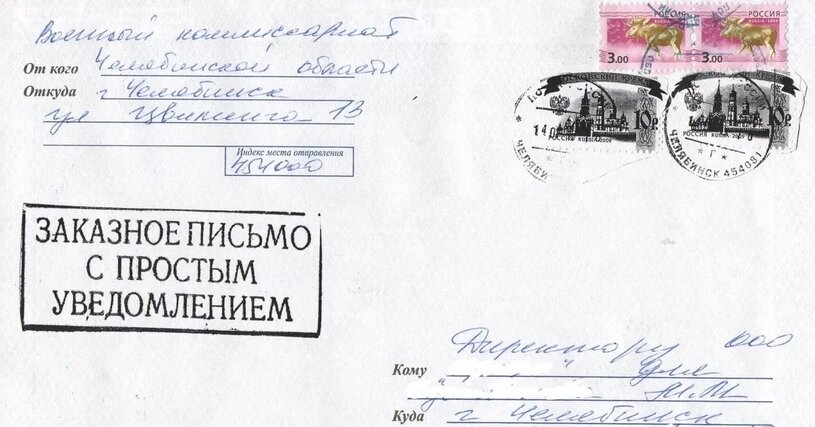 Военный комиссариат
От кого Челябинской области
Откуда г Челябинск
ул Цвиллинга 13
Индекс места отправления
454000
РОССИЯ
RUSSIA
3.00
РОССИЯ
RUSSIA
3.00
МОСКОВСКИЙ КРЕМЛЬ
10р.
РОССИЯ RUSSIA 2009
10р.
РОССИЯ RUSSIA
ЧЕЛЯБИНСК 454091
ЗАКАЗНОЕ ПИСЬМО
С ПРОСТЫМ
УВЕДОМЛЕНИЕМ
Директору ООО
Кому
Куда г Челябинск